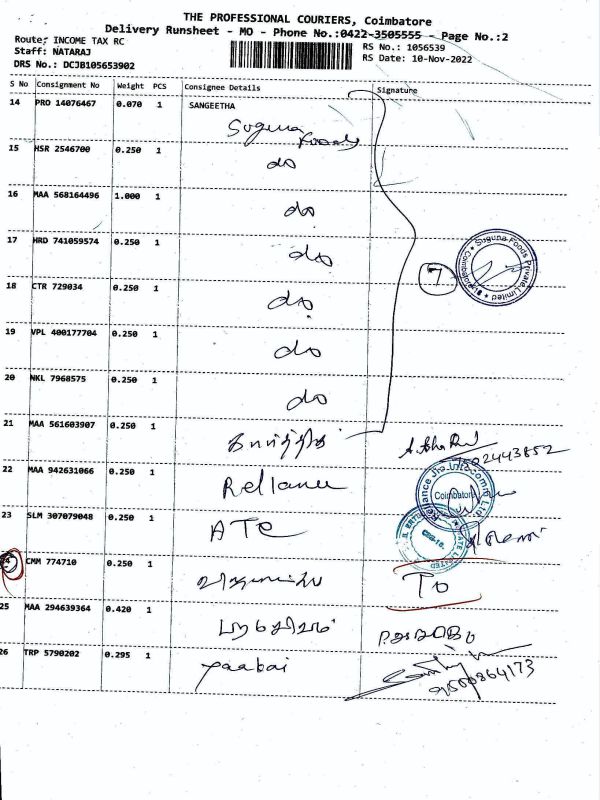 THE PROFESSIONAL COURIERS, Coimbatore
Delivery Runsheet - MO - Phone No.:0422-3505555 - Page No.:2
Route: INCOME TAX RC
RS No.: 1056539
Staff: NATARAJ
RS Date: 10-Nov-2022
DRS No.: DCJB105653902
S No Consignment No Weight PCS Consignee Details Signature
14 PRO 14076467 0.070 1 SANGEETHA
Suguna Foods
15 HSR 2546700 0.250 1 do
16 MAA 568164496 1.000 1 do
17 HRD 741059574 0.250 1 do
7 Suguna Foods Private Limited Coimbatore
18 CTR 729034 0.250 1 do
19 VPL 400177704 0.250 1 do
20 NKL 7968575 0.250 1 do
21 MAA 561603907 0.250 1
22 MAA 942631066 0.250 1 Reliance
Reliance Jio Infocomm Ltd Coimbatore
23 SLM 307079048 0.250 1 ATE
24 CMM 774710 0.250 1 To
25 MAA 294639364 0.420 1
26 TRP 5790202 0.295 1 Paabai